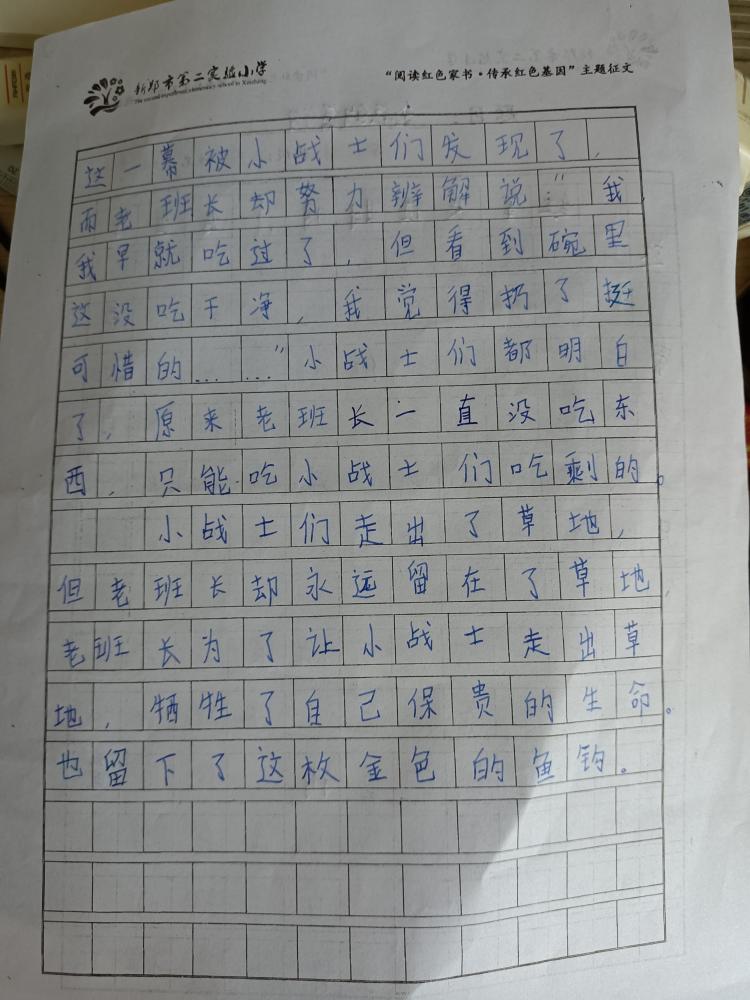 新郑市第二实验小学
"阅读红色家书·传承红色基因"主题征文
这一幕被小战士们发现了，
而老班长却努力辨解说"我，
我早就吃过了，但看到碗里
这没吃干净，我觉得扔了挺
可惜的……"小战士们都明白
了，原来老班长一直没吃东
西，只能吃小战士们吃剩的。
小战士们走出了草地，
但老班长却永远留在了草地，
老班长为了让小战士走出草
地，牺牲了自己保贵的生命。
也留下了这枚金色的鱼钩。